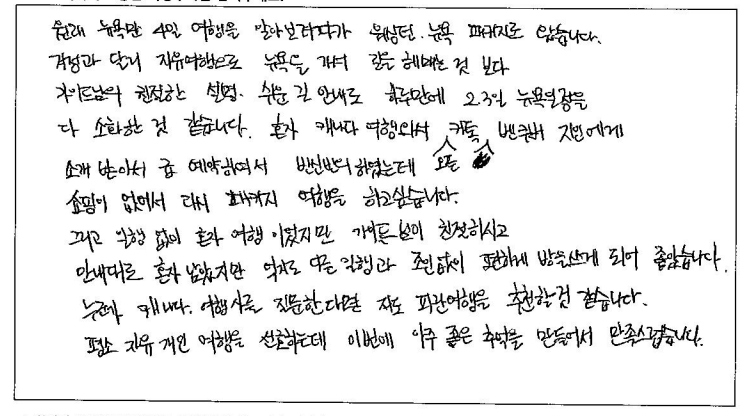 원래 뉴욕만 4일 여행을 알아보려다가 워싱턴. 뉴욕 패키지로 왔습니다.
걱정과 달리 자유여행으로 뉴욕을 가서 길을 헤매는 것 보다
가이드님의 친절한 설명. 쉬운 길 안내로 하루만에 2.3일 뉴욕일정을
다 소화한 것 같습니다. 혼자 캐나다 여행와서 카톡 밴쿠버 지인에게
소개 받아서 급 예약하여서 반신반의 하였는데 오픈
쇼핑이 없어서 다시 패키지 여행을 하고싶습니다.
그리고 일행 없이 혼자 여행 이었지만 가이드 분이 친절하시고
안내대로 혼자 남았지만 억지로 다른 일행과 조인없이 편하게 방을쓰게 되어 좋았습니다.
누군가 캐나다. 여행사를 질문한다면 저도 파란여행을 추천할 것 같습니다.
평소 자유 개인 여행을 선호하는데 이번에 아주 좋은 추억을 만들어서 만족스럽습니다.